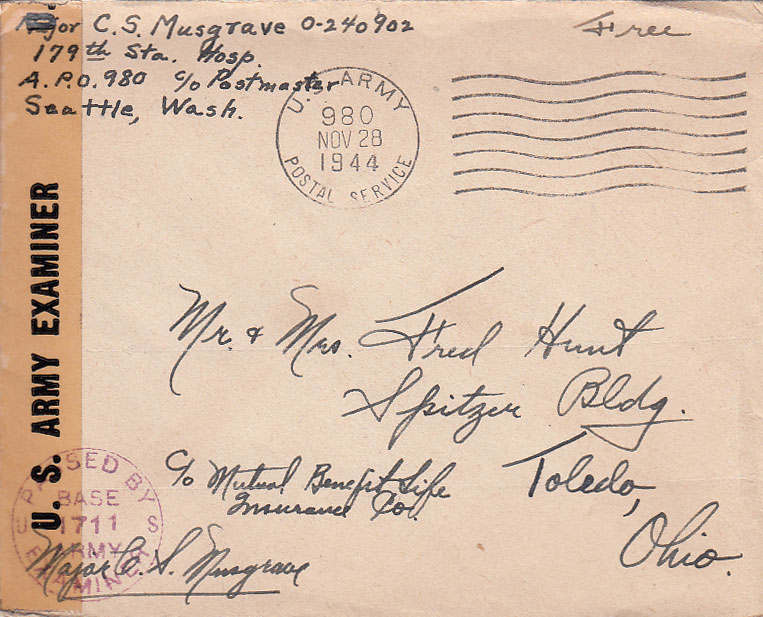 Major C. S. Musgrave O-240902
179th Sta. Hosp.
A.P.O. 980 c/o Postmaster
Seattle, Wash.
Free
U.S. ARMY
980
NOV 28
1944
POSTAL SERVICE
U. S. ARMY EXAMINER
Mr. & Mrs. Fred Hunt
Spitzer Bldg.
Toledo,
Ohio.
c/o Mutual Benefit Life
Insurance Co.
PASSED BY
BASE
U 1711 S
ARMY
EXAMINER
Major C. S. Musgrave